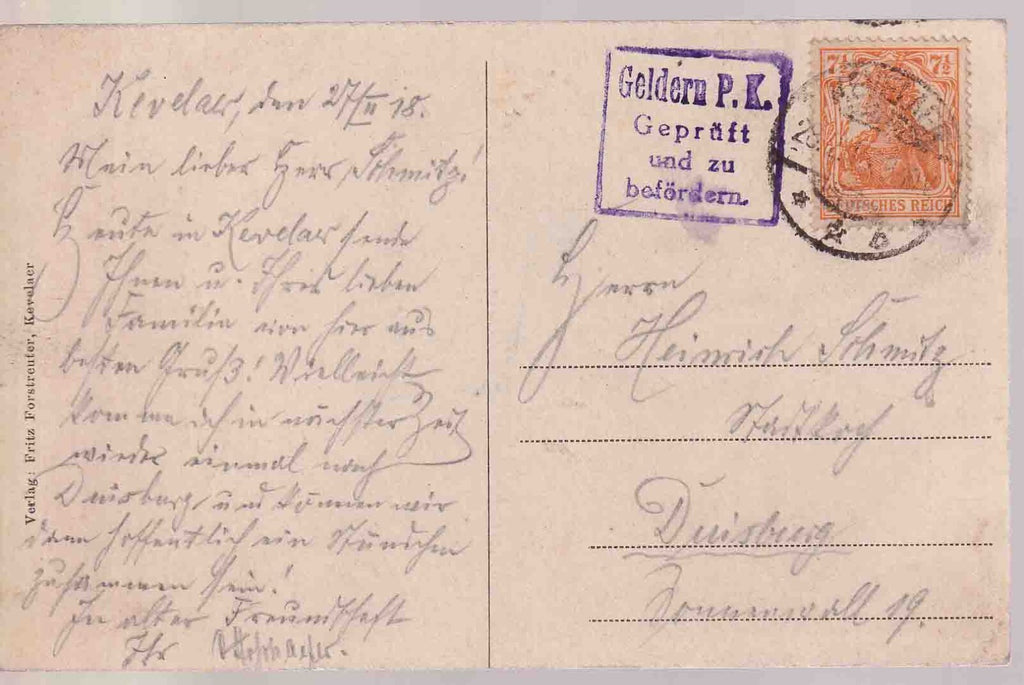 Kevelaer, den 27/II 18.
Mein lieber Herr Schmitz!
Heute in Kevelaer sende
Ihnen u. Ihrer lieben
Familie von hier aus
besten Gruß! Vielleicht
komme ich in nächster Zeit
wieder einmal nach
Duisburg, und können wir
dann hoffentlich ein Stündchen
zusammen sein!
In alter Freundschaft
Ihr
Verlag: Fritz Forstreuter, Kevelaer
Geldern P. K.
Geprüft
und zu
befördern.
7½ 7½
DEUTSCHES REICH
Herrn
Heinrich Schmitz
Stadtkoch
Duisburg
Sonnenwall 19.